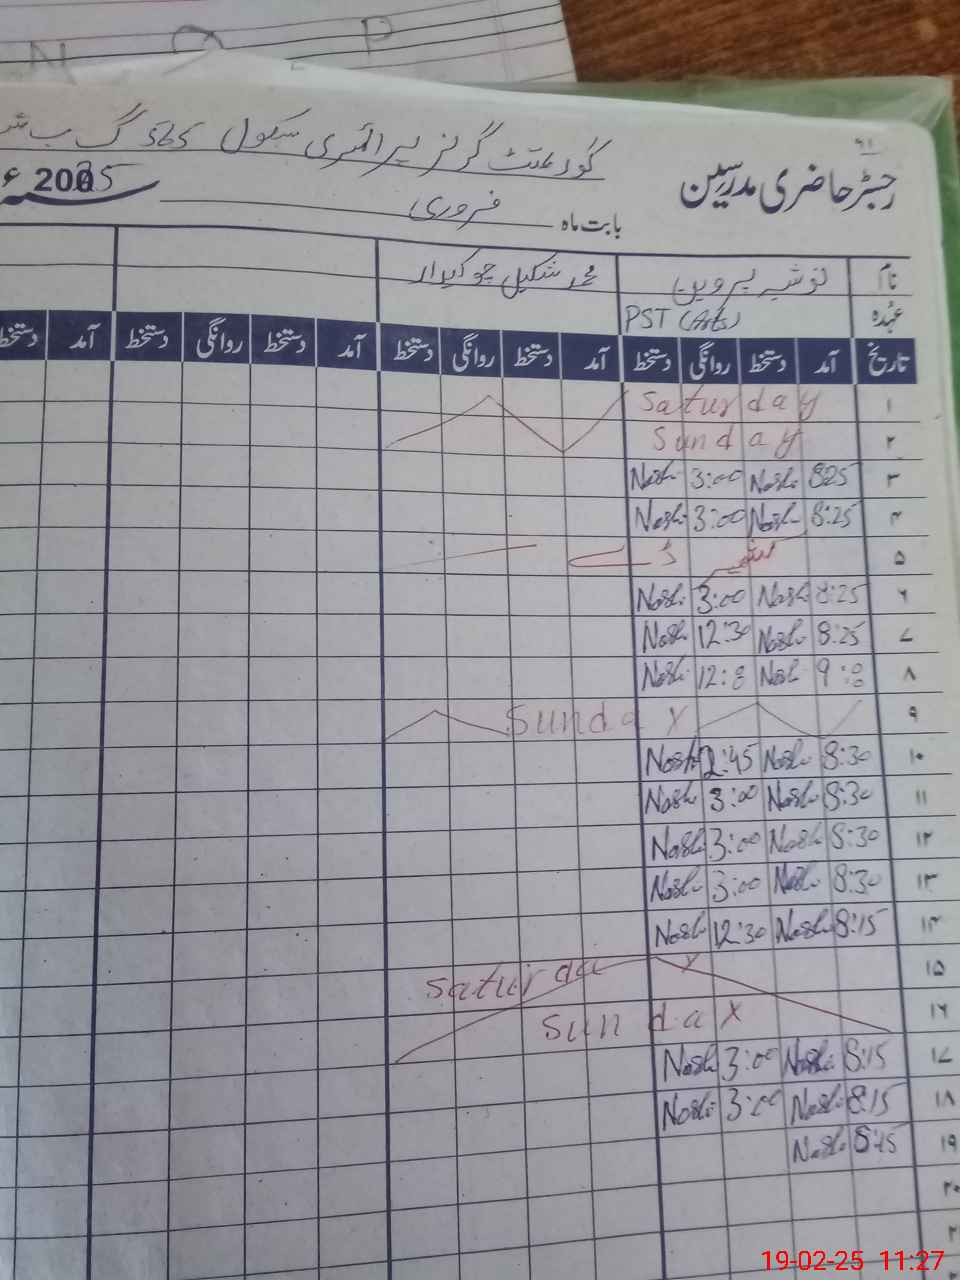 N P
گورنمنٹ گرلز پرائمری سکول 565 گ ب
رجسٹر حاضری مدرسین
بابت ماہ فروری 2025 ء
نام نوشیہ پروین محمد شکیل چوکیدار
عہدہ PST (Arts)
تاریخ آمد دستخط روانگی دستخط آمد دستخط روانگی دستخط آمد دستخط روانگی دستخط آمد دستخط
۱ Saturday
۲ Sunday
۳ 8:25 Nosh. 3:00 Nosh.
۴ 8:25 Nosh. 3:00 Nosh.
۵
۶ 8:25 Nosh. 3:00 Nosh.
۷ 8:25 Nosh. 12:30 Nosh.
۸ 9:00 Nosh. 12:00 Nosh.
۹ Sunday
۱۰ 8:30 Nosh. 2:45 Nosh.
۱۱ 8:30 Nosh. 3:00 Nosh.
۱۲ 8:30 Nosh. 3:00 Nosh.
۱۳ 8:30 Nosh. 3:00 Nosh.
۱۴ 8:15 Nosh. 12:30 Nosh.
۱۵ Saturday
۱۶ Sunday
۱۷ 8:15 Nosh. 3:00 Nosh.
۱۸ 8:15 Nosh. 3:00 Nosh.
۱۹ 8:15 Nosh.
۲۰
19-02-25 11:27